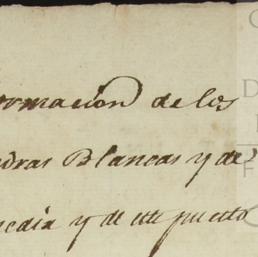 ormacion de los
dras Blancas y de
y de este puesto